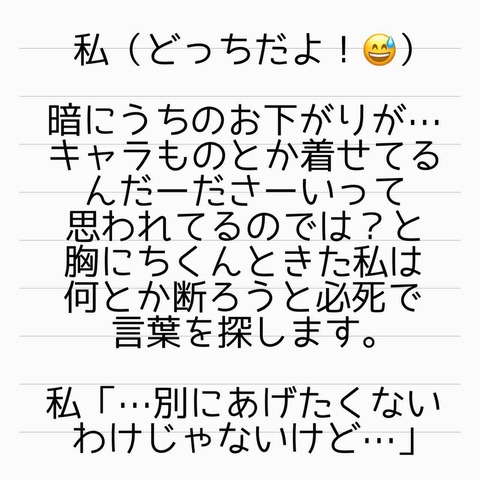 私（どっちだよ！😅）
暗にうちのお下がりが…
キャラものとか着せてる
んだーださーいって
思われてるのでは？と
胸にちくんときた私は
何とか断ろうと必死で
言葉を探します。
私「…別にあげたくない
わけじゃないけど…」